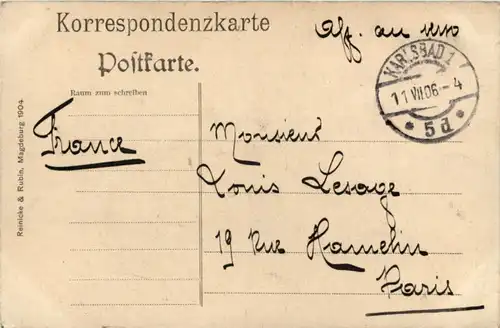 Korrespondenzkarte
Postkarte.
Raum zum schreiben
KARLSBAD 1
11 VII 06 - 4
* 5d *
France
Monsieur
Louis Lesage
19 Rue Hamelin
Paris
Reinicke & Rubin, Magdeburg 1904